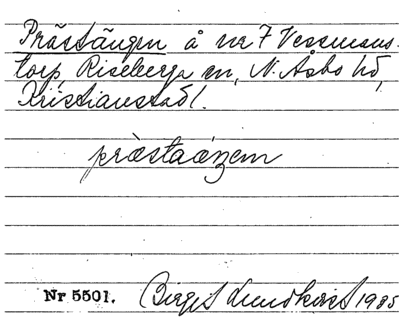 Prästängen å nr 7 Vessmans-
torp, Riseberga sn, N. Åsbo hd,
Kristianstad l.
prästaáŋem
Nr 5501. Birgit Lundkvist 1985